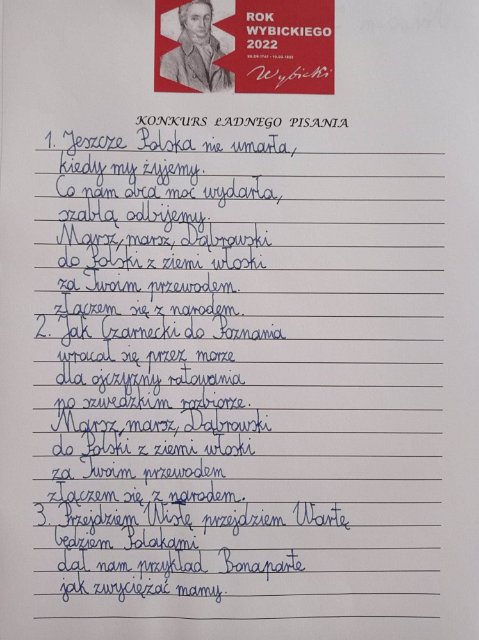 ROK
WYBICKIEGO
2022
Wybicki
KONKURS ŁADNEGO PISANIA
1. Jeszcze Polska nie umarła,
kiedy my żyjemy.
Co nam obca moc wydarła,
szablą odbijemy.
Marsz, marsz, Dąbrowski
do Polski z ziemi włoski
za Twoim przewodem.
złączem się z narodem.
2. Jak Czarnecki do Poznania
wracał się przez morze
dla ojczyzny ratowania
po szwedzkim rozbiorze.
Marsz, marsz, Dąbrowski
do Polski z ziemi włoski
za Twoim przewodem
złączem się z narodem.
3. Przejdziem Wisłę przejdziem Wartę
będziem Polakami
dał nam przykład Bonaparte
jak zwyciężać mamy.